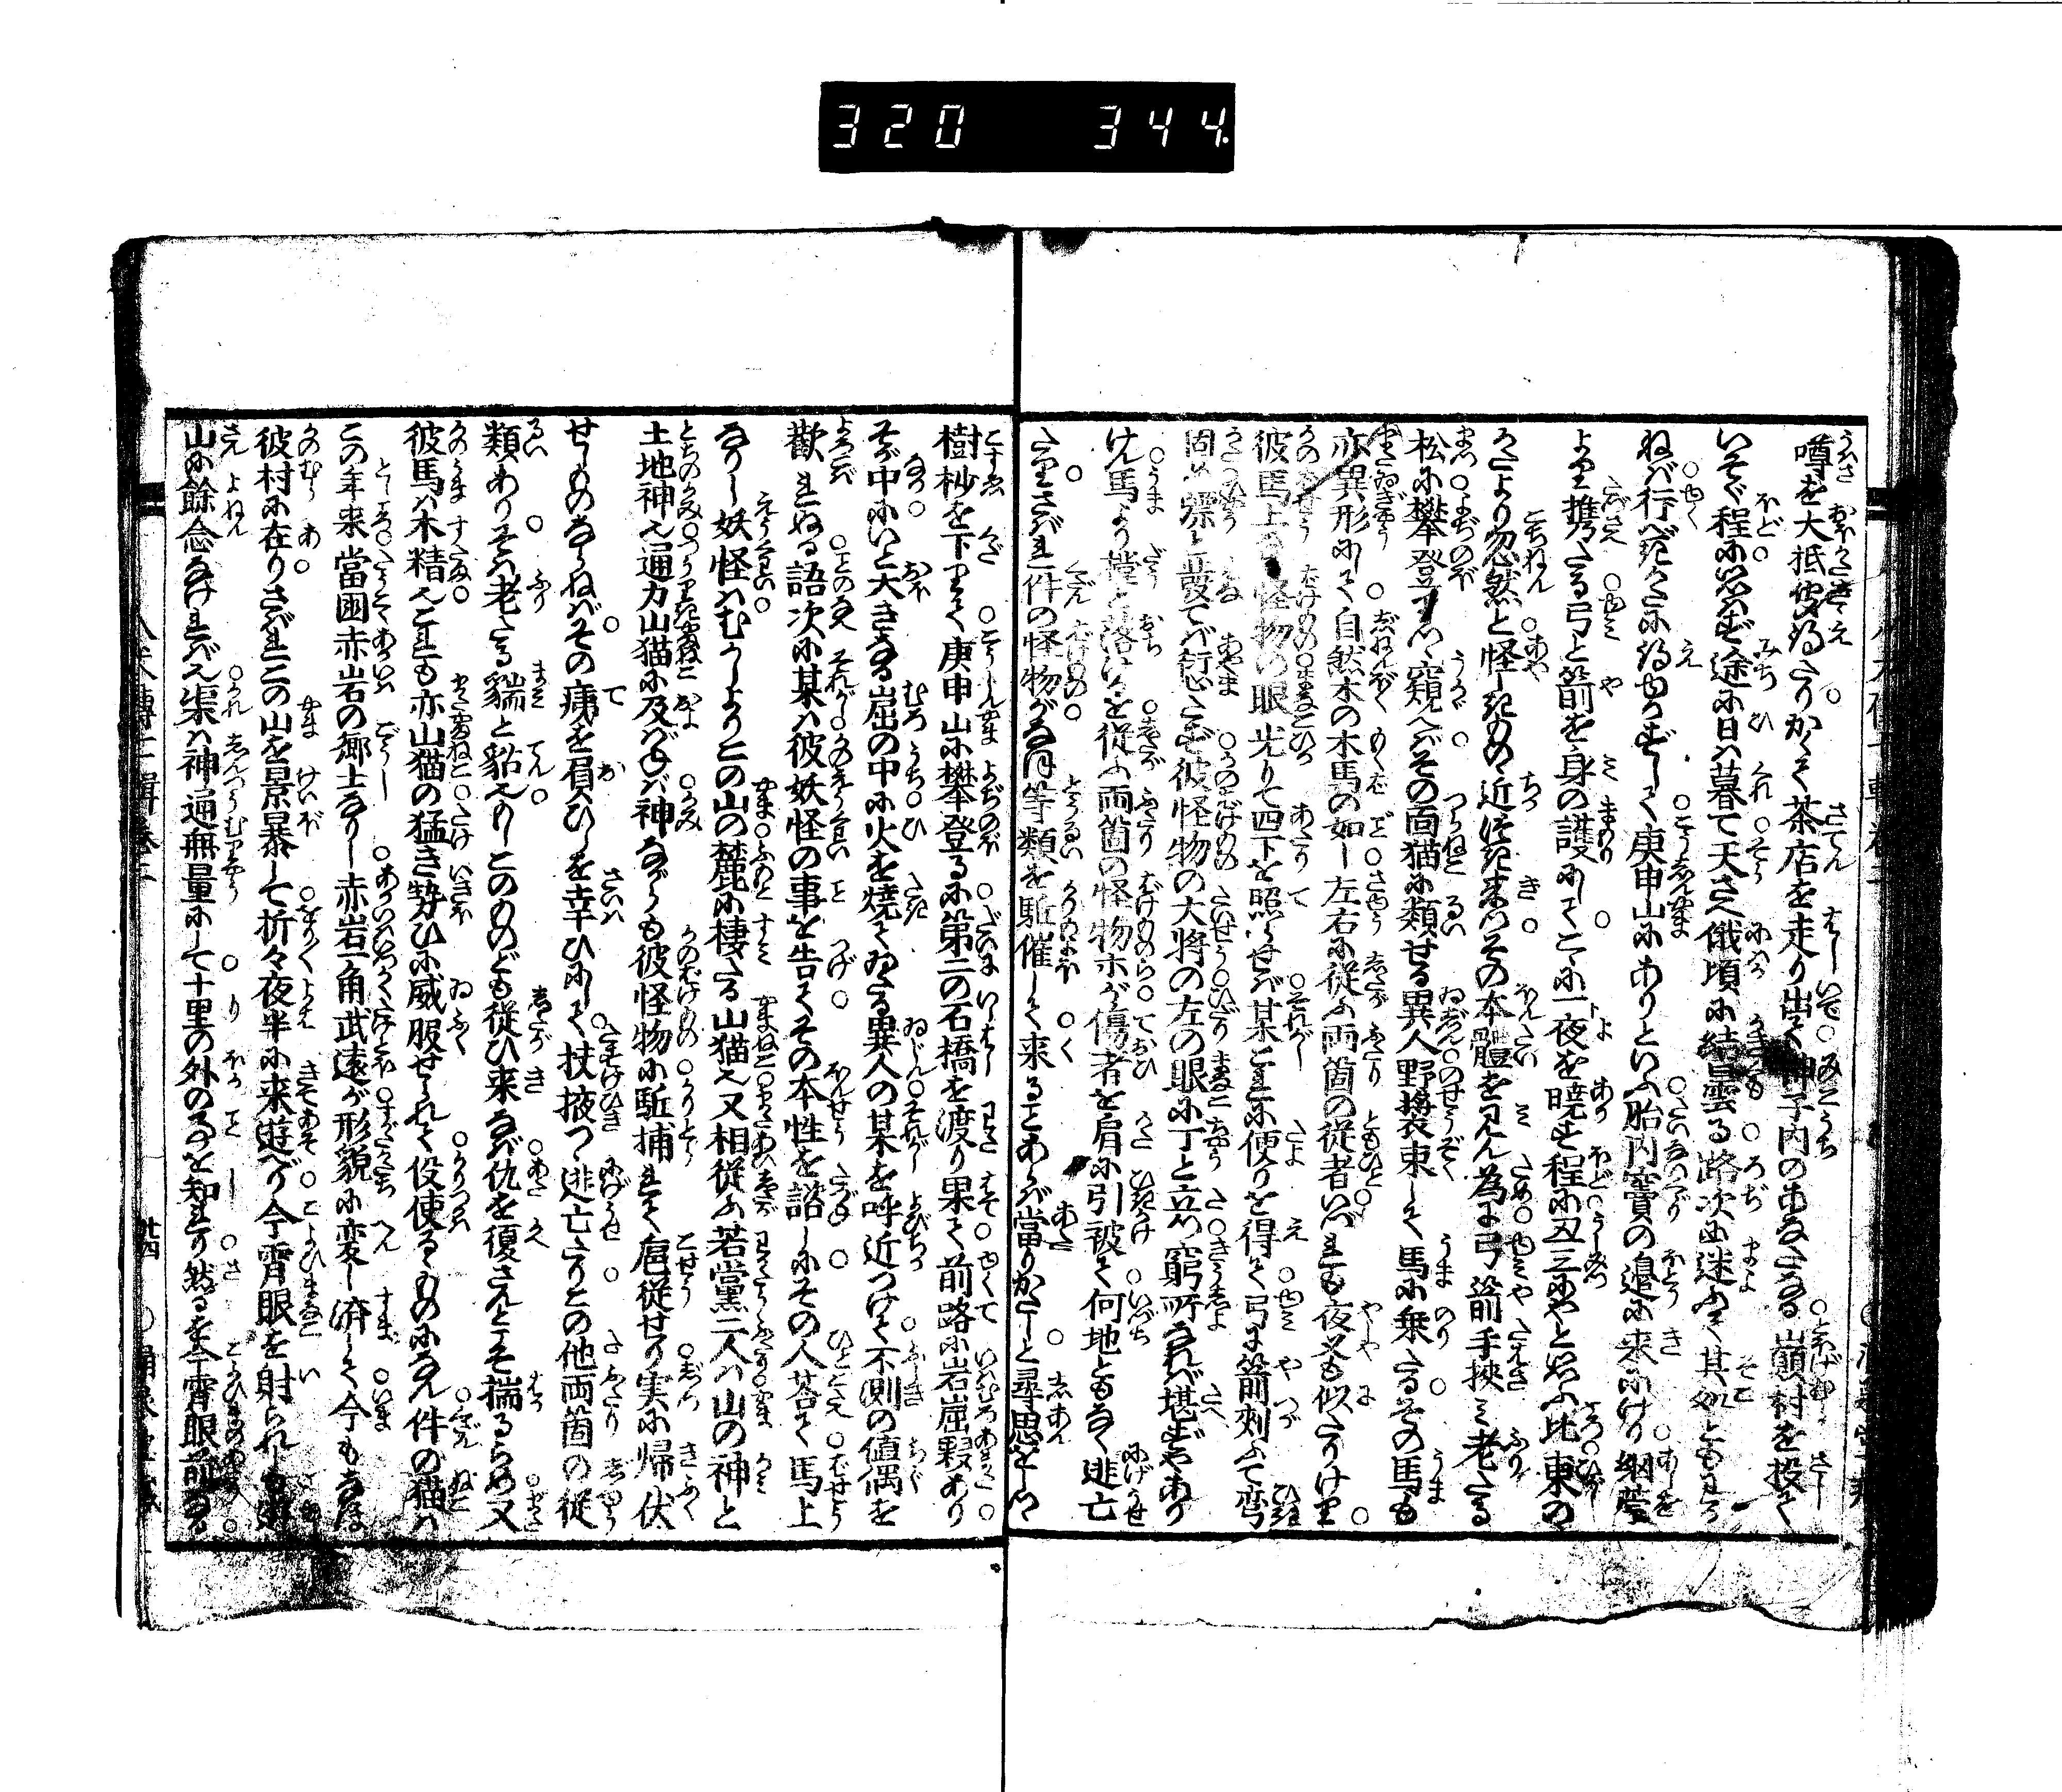 320 344
噂を大抵聞得たりかくて茶店を走り出て神子内のあなたなる嶺村を投て
いそぐ程に思はず途に日は暮て天さへ俄頃に結曇る路次に迷ふて其処ともわか
ねば行べきかたに得ゆかずして庚申山にありといふ胎内竇の邊に来にけり網苧
より携たる弓と箭を身の護にしてこゝに一夜を暁す程に丑三にやと思ふ比東の
かたより忽然と怪しきもの近づき来つその本體を見ん為に弓箭手挾み老たる
松に攀登りつゝ窺へばその面猫に類せる異人野裝束して馬に乗たるその馬も
亦異形にして自然木の木馬の如し左右に従ふ両箇の従者いへばさら也夜叉にも似たりけり
彼馬上なる怪物の眼光りて四下を照らせば某これに便りを得て弓に箭刺ふて彎
固め驃と發てば愆たず彼怪物の大将の左の眼に丁と立つ窮所なれば堪ずやあり
けん馬より撲と落けるを従ふ両箇の怪物ホが傷者を肩に引被て何地ともなく逃亡
たりさばれ件の怪物がなほ等類を駈催して来ることあらば當りかたしと尋思をしつゝ
樹杪を下りて庚申山に攀登るに第二の石橋を渡り果て前路に岩窟夥あり
そが中にいと大きなる崫の中に火を焼てゐたる異人の某を呼近つけて不測の値偶を
歡れぬる語次に某は彼妖怪の事を告てその本性を諮しにその人荅て馬上
なりし妖怪はむかしよりこの山の麓に棲たる山猫也又相従ふ若黨二人は山の神と
土地神也通力山猫に及ばねば神ながらも彼怪物に駈捕れて扈従せり実に帰伏
せしものならねばその痍を負ひしを幸ひにして扶掖つゝ逃亡たりこの他両箇の従
類ありそは老たる貒と貂也けりこのものども従ひ来なば仇を復さんとこそ揣るらめ又
彼馬は木精也これも亦山猫の猛き勢ひに威服せられて役使るゝものになん件の猫は
この年来當國赤岩の郷士なりし赤岩一角武遠が形貌に変じ済して今もなほ
彼村に在りさばれこの山を景暴して折々夜半に来遊べり今宵眼を射られしも遊
山に餘念なければ也渠は神通無量にして十里の外の事を知れり然るを今宵眼前なる